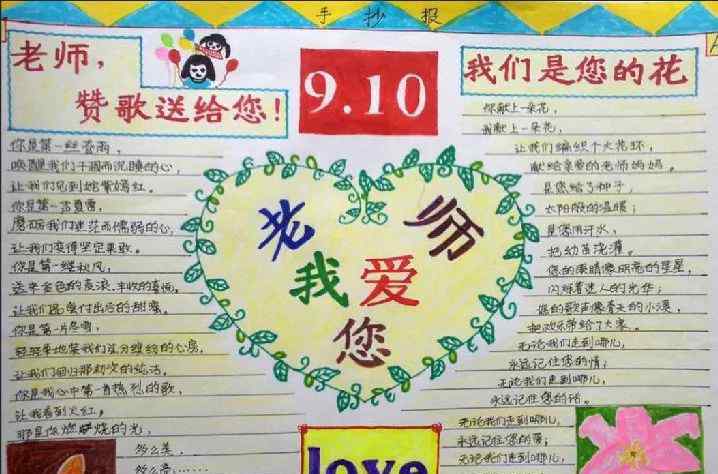 手抄报
老师，
赞歌送给您！
9.10
我们是您的花
你是第一丝春雨，
唤醒我们干涸而沉睡的心，
让我们见到姹紫嫣红。
你是第一
让我们变得坚定果敢。
你是第一缕秋风，
送来金色的麦浪，丰收的喜悦，
让我们感受付出后的甜蜜。
你是第一片冬雪，
轻轻地
让我们回归那初次的纯洁，
你是我心中第一首热烈的歌，
让我看到火红，
那是你燃烧的光，
那么美，
那么亮……
老师
我爱
您
love
你献上一朵花，
我献上一朵花，
让我们编织个大花环，
献给亲爱的老师妈妈。
是您给了种子，
太阳般的温暖；
是您用汗水，
把幼苗浇灌。
您的眼睛像明亮的星星，
闪烁着迷人的光华；
您的歌声像春天的小溪，
把欢乐带给了大家。
无论我们走到哪儿，
永远记住您的情；
无论我们走到哪儿，
永远记住您的话。
无论我们走到哪儿，
永远记住您的情；
无论我们走到哪儿，